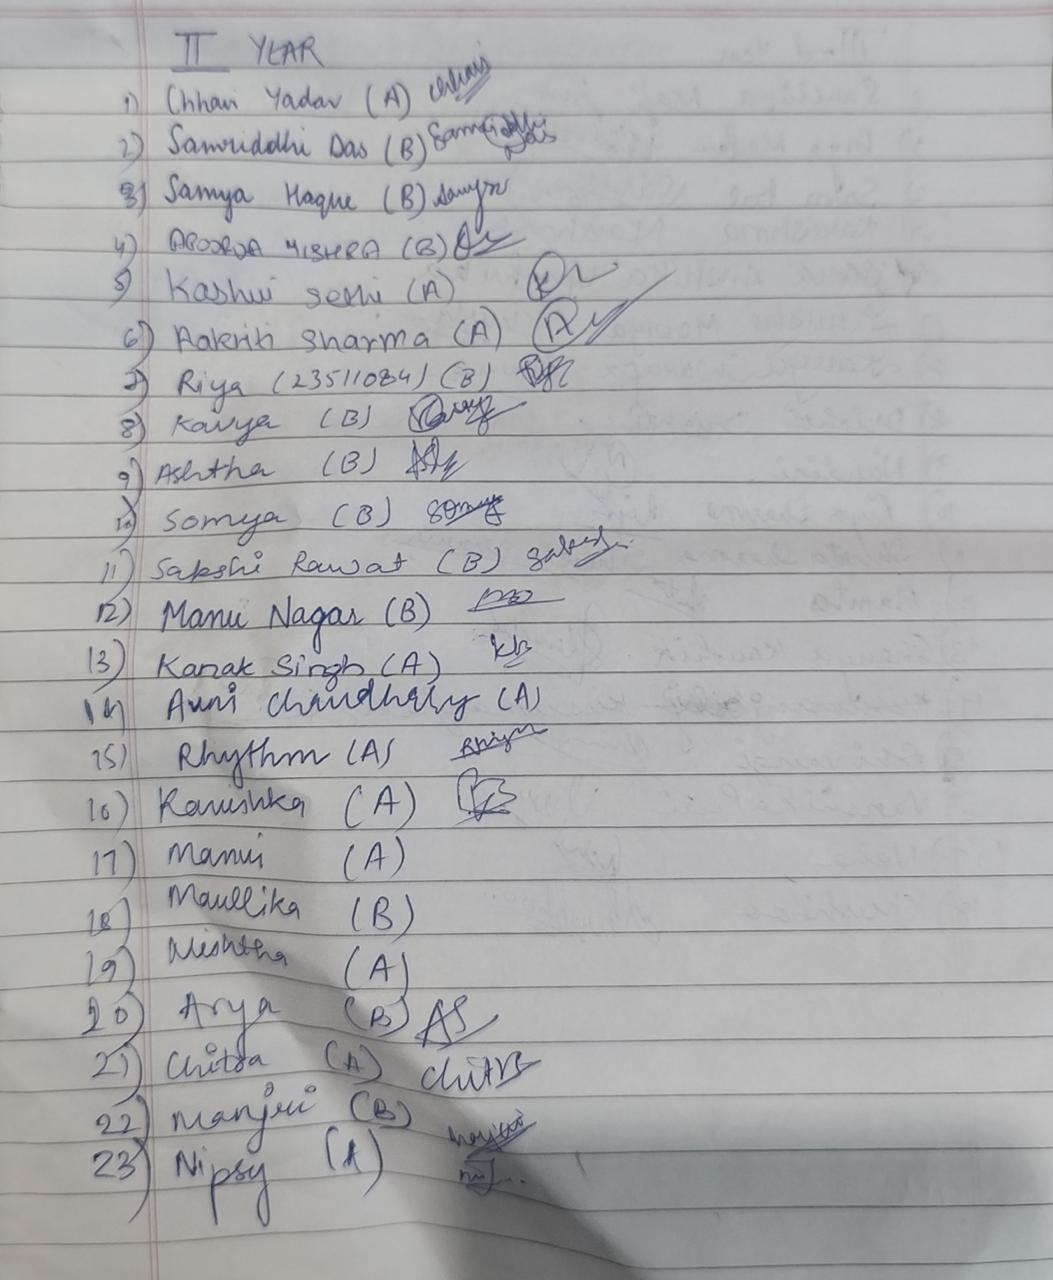 II YEAR
1) Chhavi Yadav (A) Chhavi
2) Samriddhi Das (B) Samriddhi Das
3) Samya Haque (B) Samya
4) APOORVA MISHRA (B)
5) Kashvi Sethi (A)
6) Aakriti Sharma (A)
7) Riya (23511084) (B)
8) Kavya (B) Kavya
9) Ashtha (B)
10) Somya (B) Somya
11) Sakshi Rawat (B) Sakshi
12) Manu Nagar (B)
13) Kanak Singh (A)
14) Avni Chaudhary (A)
15) Rhythm (A) Rhythm
16) Kanishka (A)
17) Manvi (A)
18) Maullika (B)
19) Nishtha (A)
20) Arya (B) AS
21) Chitra (A) Chitra
22) Manjri (B)
23) Nipsy (A)